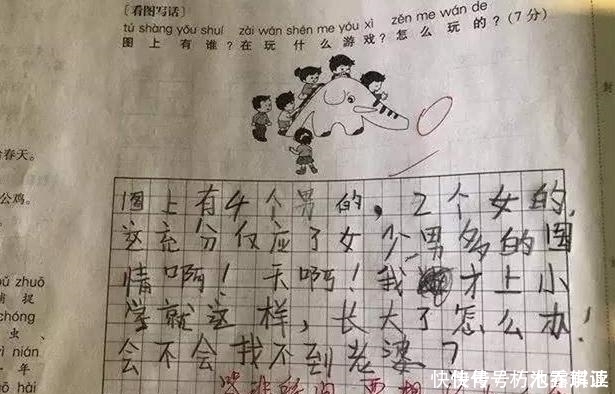 [看图写话]
tú shàng yǒu shuí zài wán shén me yóu xì zěn me wán de
图上有谁？在玩什么游戏？怎么玩的？(7分)
图上有4个男的，2个女的，
这充分仅应了女少男多的国
情啊！天啊！我才上小
学就这样，长大了怎么办！
会不会找不到老婆？
春天。
公鸡。
zhuō
捕捉
chóng
虫、
nián
一年
hǎo hài
封